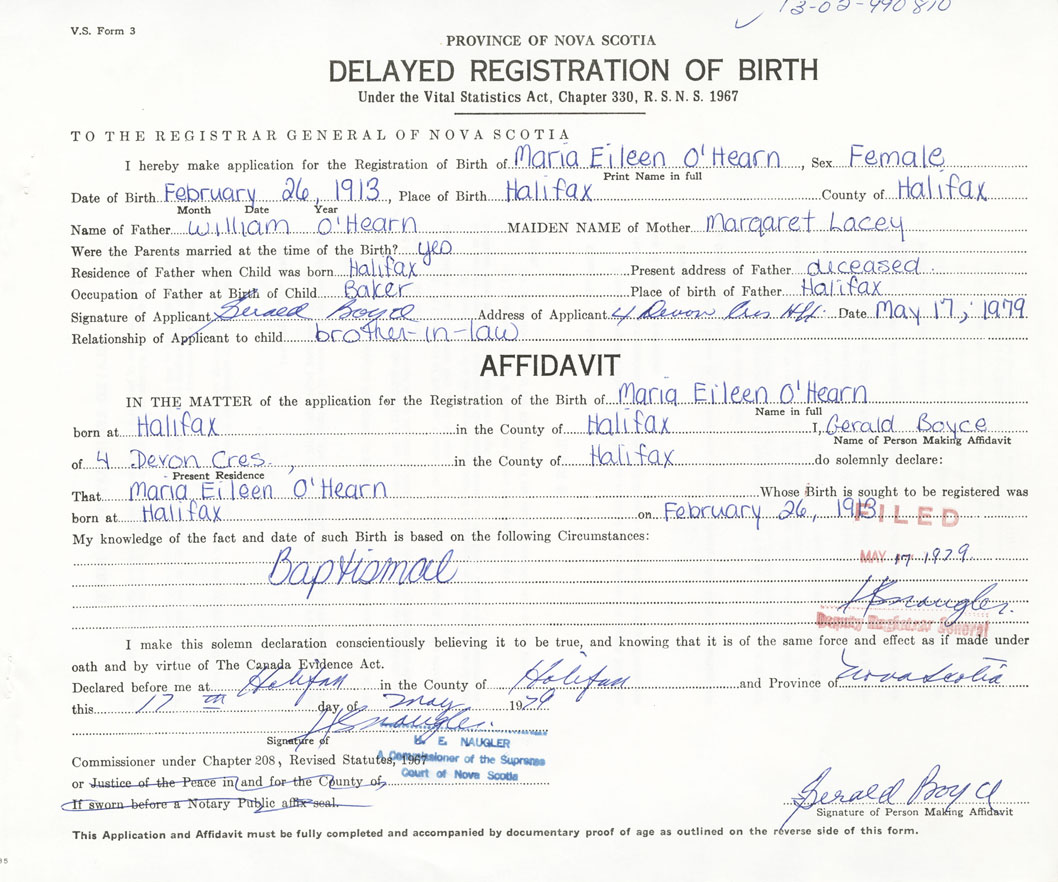 13-02-990810
V.S. Form 3
PROVINCE OF NOVA SCOTIA
DELAYED REGISTRATION OF BIRTH
Under the Vital Statistics Act, Chapter 330, R.S.N.S. 1967
TO THE REGISTRAR GENERAL OF NOVA SCOTIA
I hereby make application for the Registration of Birth of Maria Eileen O'Hearn, Sex Female
Print Name in full
Date of Birth February 26, 1913, Place of Birth Halifax County of Halifax
Month Date Year
Name of Father William O'Hearn MAIDEN NAME of Mother Margaret Lacey
Were the Parents married at the time of the Birth? yes
Residence of Father when Child was born Halifax Present address of Father diceased.
Occupation of Father at Birth of Child Baker Place of birth of Father Halifax
Signature of Applicant Gerald Boyce Address of Applicant 4 Devon Cres Hfx. Date May 17, 1979
Relationship of Applicant to child brother-in-law
AFFIDAVIT
IN THE MATTER of the application for the Registration of the Birth of Maria Eileen O'Hearn
Name in full
born at Halifax in the County of Halifax I, Gerald Boyce
Name of Person Making Affidavit
of 4 Devon Cres., in the County of Halifax do solemnly declare:
Present Residence
That Maria Eileen O'Hearn Whose Birth is sought to be registered was
born at Halifax on February 26, 1913
FILED
My knowledge of the fact and date of such Birth is based on the following Circumstances:
MAY 17 1979
Baptismal
Naugler.
Deputy Registrar General
I make this solemn declaration conscientiously believing it to be true, and knowing that it is of the same force and effect as if made under
oath and by virtue of The Canada Evidence Act.
Declared before me at Halifax in the County of Halifax and Province of Nova Scotia
this 17th day of May 1979
Naugler.
Signature of
E. NAUGLER
Commissioner under Chapter 208, Revised Statutes, 1967
A Commissioner of the Supreme
Court of Nova Scotia
or Justice of the Peace in and for the County of
If sworn before a Notary Public affix seal.
Gerald Boyce
Signature of Person Making Affidavit
This Application and Affidavit must be fully completed and accompanied by documentary proof of age as outlined on the reverse side of this form.